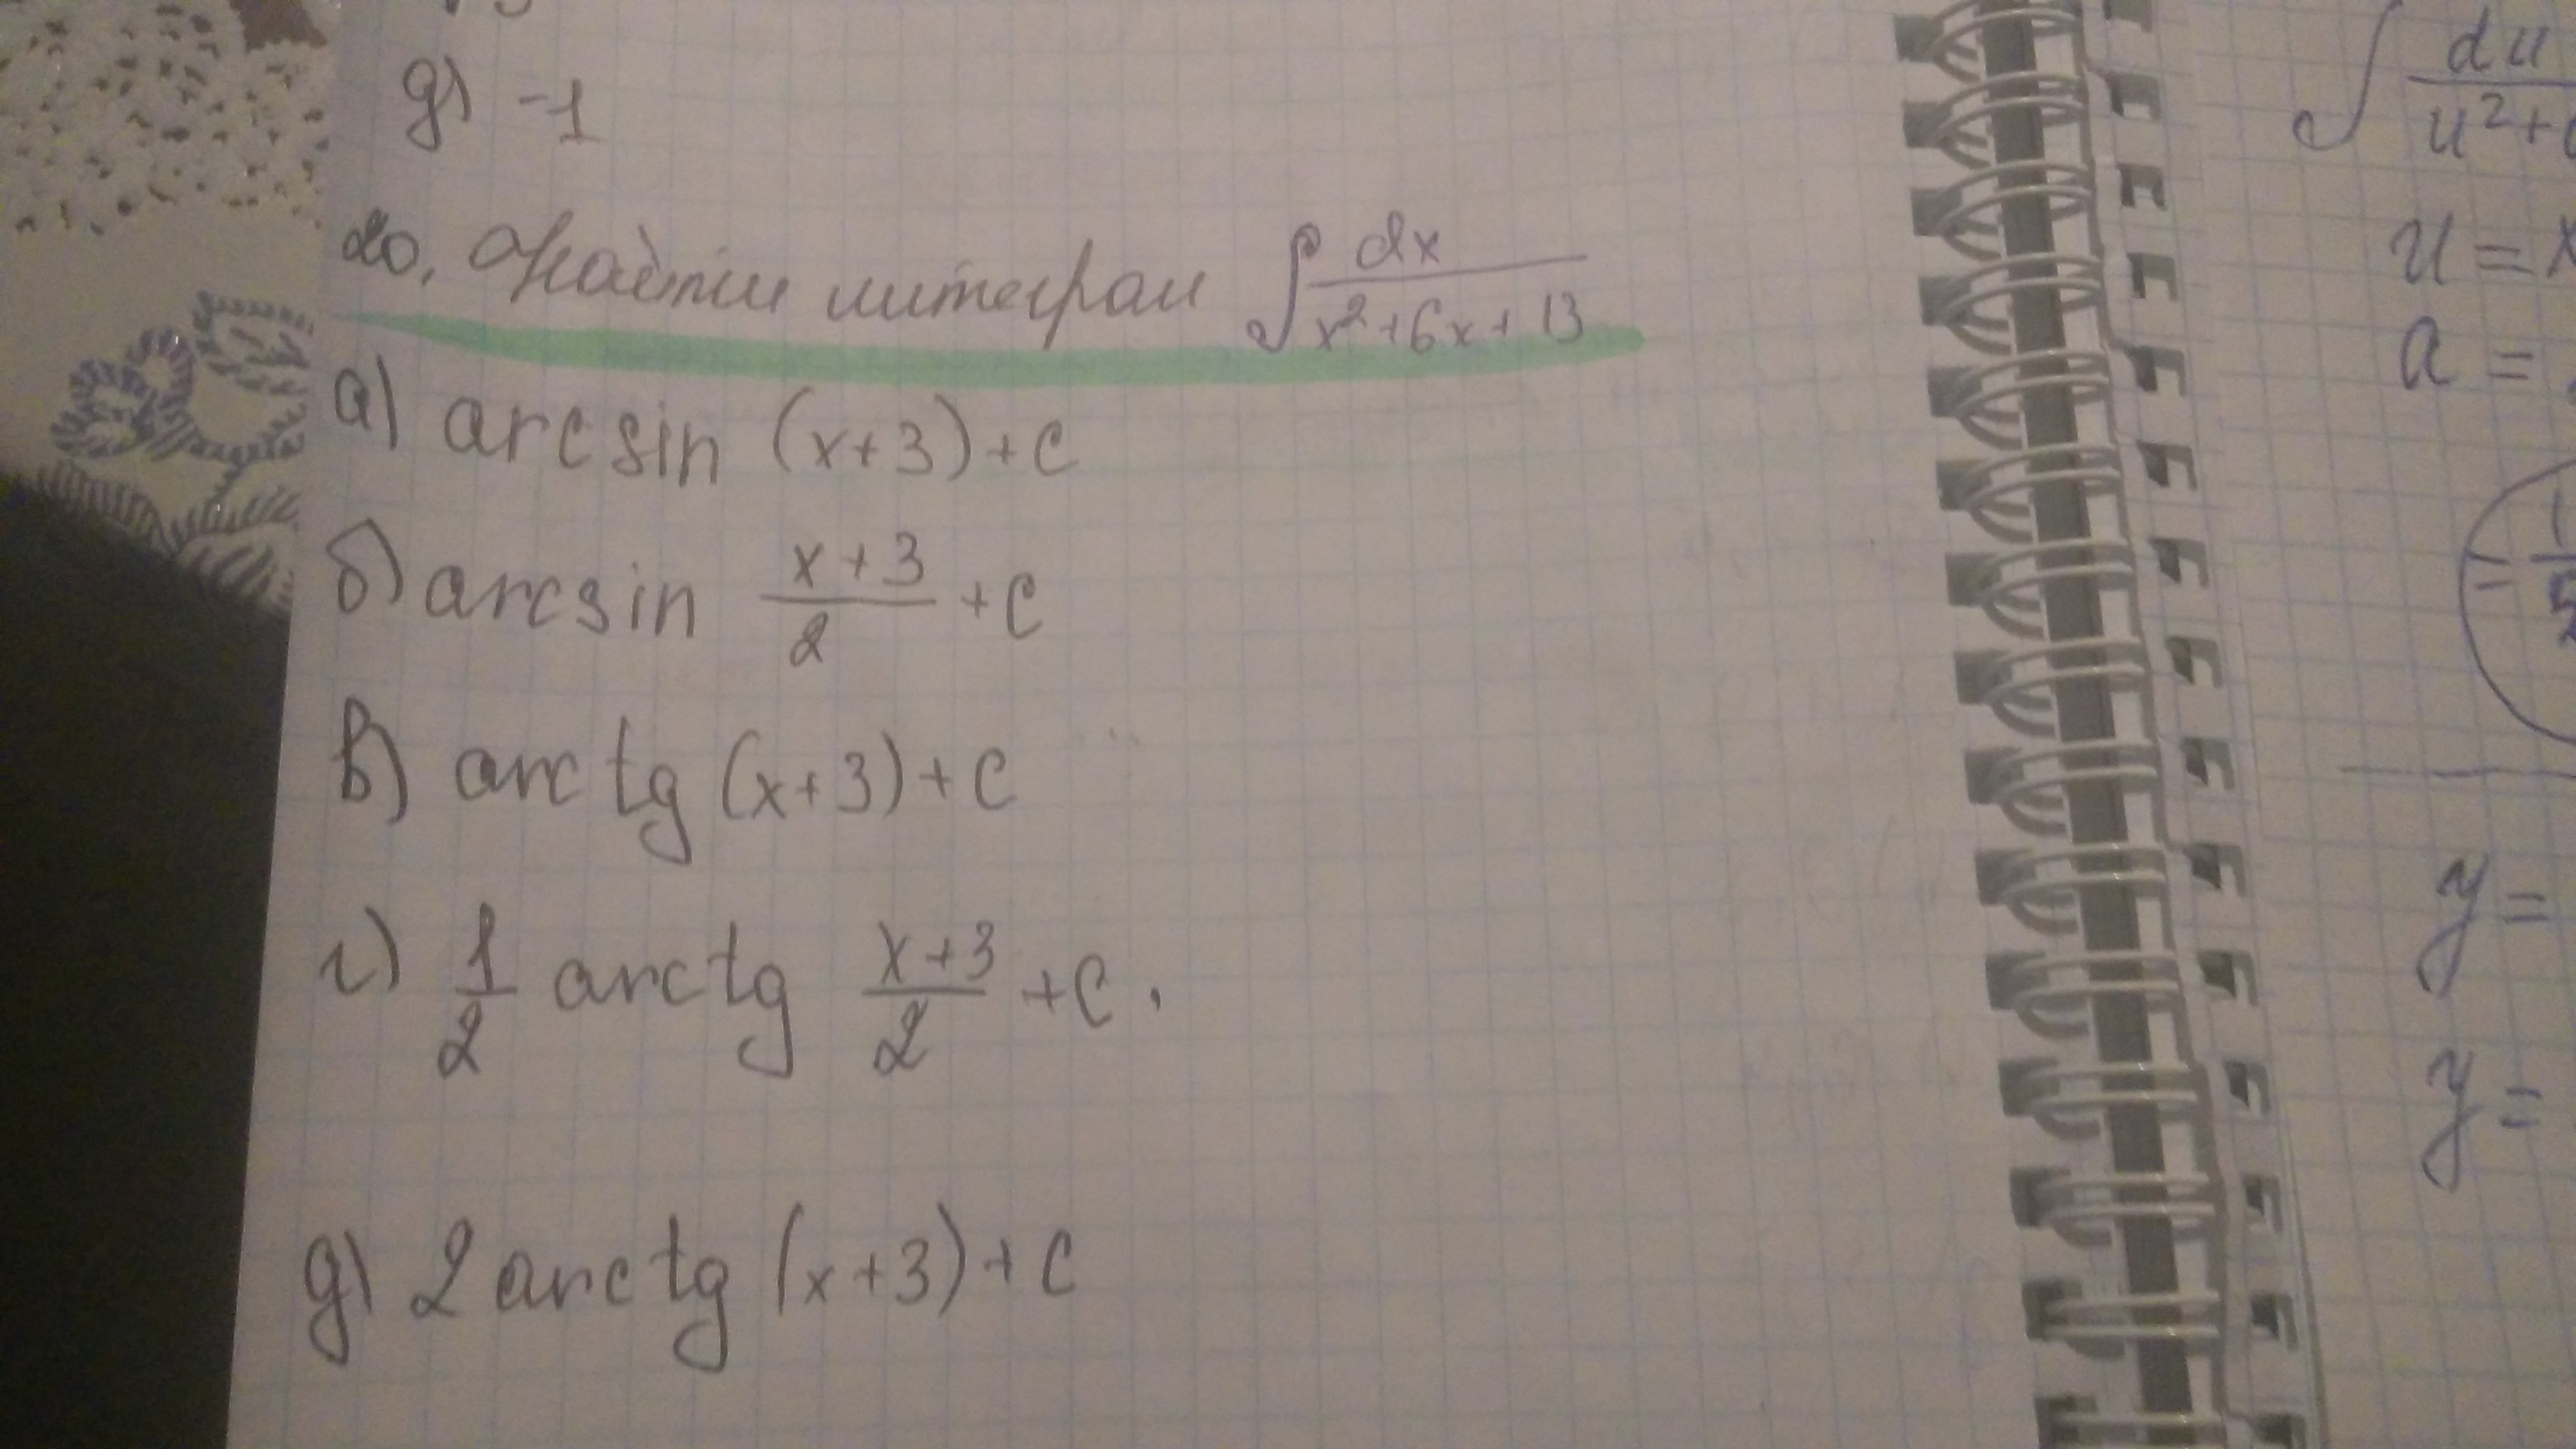 д) -1
20. Найти интеграл ∫ dx / x²+6x+13
а) arcsin (x+3)+C
б) arcsin x+3 / 2 +C
в) arctg (x+3)+C
г) 1/2 arctg x+3 / 2 +C.
д) 2 arctg (x+3)+C
∫ du / u²+
u = x
a =
=
y =
y =